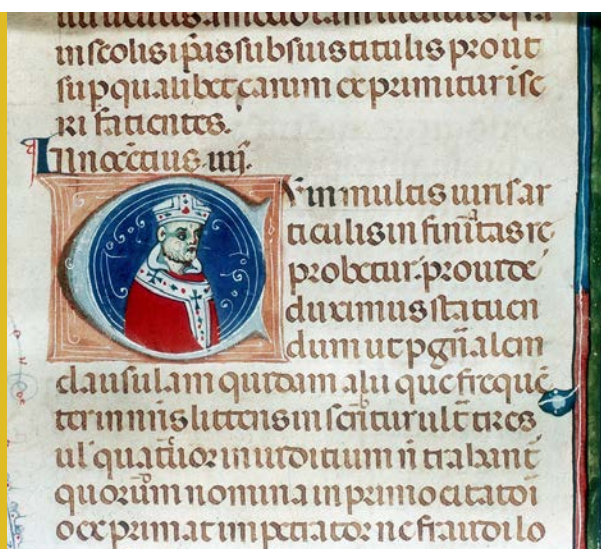 in scolis ipas sub suis titulis prout
sup qualibet earum exprimitur ise
ri facientes.
Innocētius .iiij.
Cum in multis iuris ar
ticulis infinitas re
probetur. prouide
duximus statuen
dum ut p gn̄alem
clausulam quidam alii que frequē
ter in nr̄is litteris inscribitur ult̄ tres
ul' quatuor in iuditium n̄ trahant̄
quorum nomina in primo citatoī
o exprimat impetrator ne fraudi lo